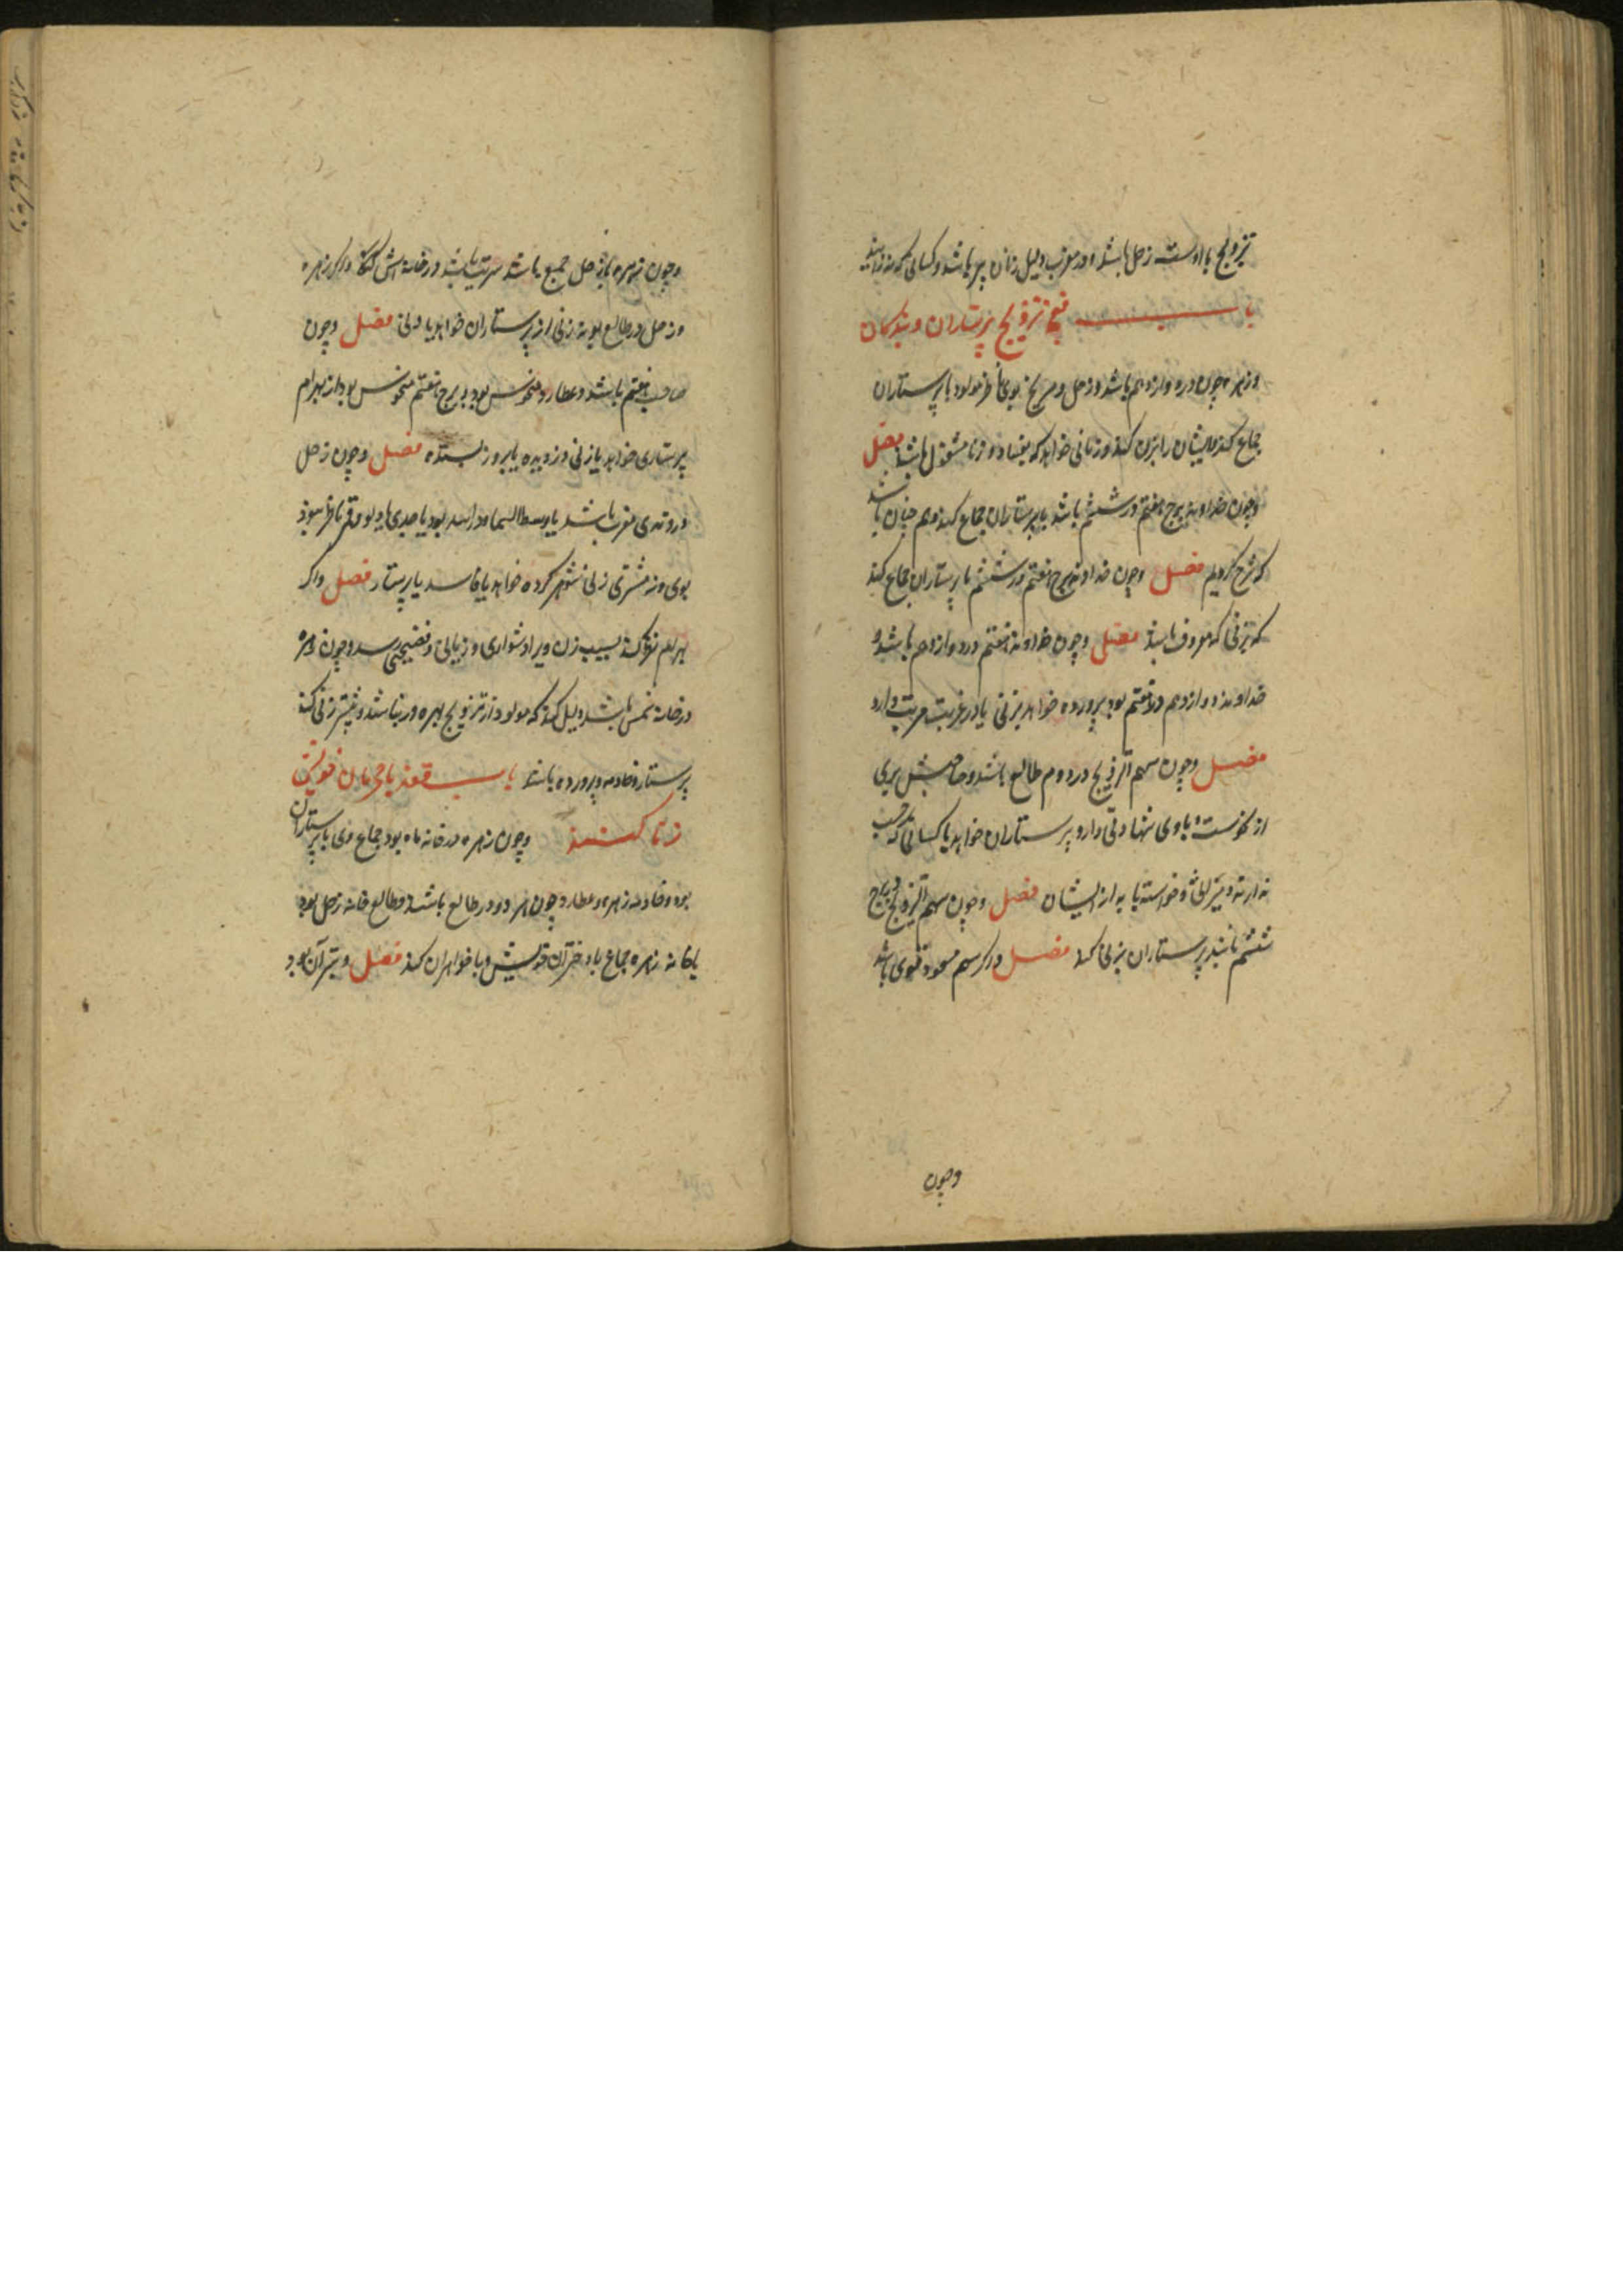 تزویج با اوست زحل باشد اندر مغرب دلیل زنان پیر باشد و کسانی که نه زایند
باب فی تزویج پرستاران و بندگان
و زهره چون در دوازدهم باشد و زحل و مریخ بوی ناظر مولود با پرستاران
جماع کند و ایشان را بزن کند و زنانی خواهد که بفساد و زنا مشغول باشند فصل
و چون خداوند برج هفتم در ششم باشد با پرستاران جماع کند و هم چنان باشد
که شرح کردیم فصل و چون خداوند برج هفتم در ششم با پرستاران جماع کند
که بزنی که معروف باشد فصل و چون خداوند هفتم در دوازدهم باشد و
خداوند دوازدهم در هفتم بود پرورده خواهد بزنی یا در غربت
فصل و چون سهم التزویج در دوم طالع باشد و صاحبش بری
از نحوست و با وی شهادتی دارد پرستاران خواهد یا کسانی که حسب
ندارند و منزلی و خواسته یابد از ایشان فصل و چون سهم التزویج در برج
ششم باشد پرستاران بزنی کند فصل و اگر سهم مسعود قوی باشد
وچون
و چون زهره با زحل جمع باشد در خانه اش و اگر زهره
و زحل در طالع بوند زنی از پرستاران خواهد یا دنی فصل و چون
صاحب هفتم باشد و عطارد منحوس بود ببرج هفتم منحوس بود از بهرام
پرستاری خواهد یا زنی دزدیده یا برو بسته فصل و چون زحل
در وتدی مغرب باشد یا وسط السما و در اسد بود یا جدی یا دلو و قمر ناظر نبود
بوی و نه مشتری زنی شوهر کرده خواهد یا فاسد یا پرستار فصل و اگر
بهرام نظر کند بسبب زن ویرا دشواری و زیانی و فضیحتی رسد و چون زهره
در خانه نحس باشد دلیل کند که مولود از تزویج بهره ور نباشد و بیشتر زنی کند
پرستار و خادمه و پرورده باشد باب قومی با محرمان خویش
زنا کنند و چون زهره در خانه ماه بود جماع وی با پرستاران
بود و خادمه زهره و عطارد چون هر دو در طالع باشند و طالع خانه زحل بود
یا خانه زهره جماع با دختران خویش و با خواهران کند فصل و بتر آن بود